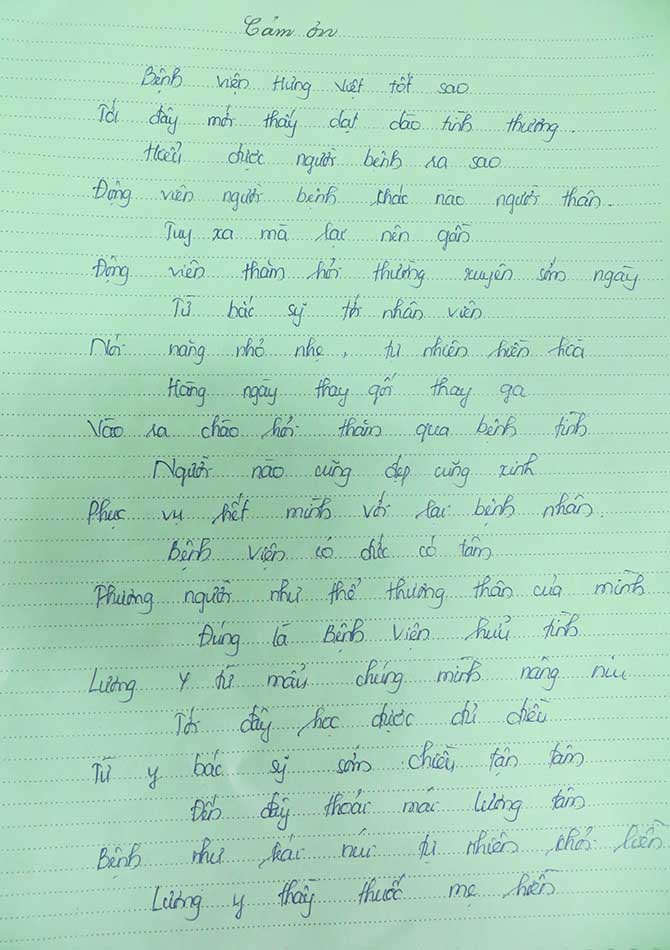 Cảm ơn
Bệnh viện Hưng Việt tốt sao
Tới đây mới thấy dạt dào tình thương.
Hiểu được người bệnh ra sao
Động viên người bệnh khác nào người thân.
Tuy xa mà lại nên gần
Động viên thăm hỏi thường xuyên sớm ngày
Từ bác sỹ tới nhân viên
Nói năng nhỏ nhẹ, tự nhiên hiền hoà
Hàng ngày thay gối thay ga
Vào ra chào hỏi thăm qua bệnh tình
Người nào cũng đẹp cũng xinh
Phục vụ hết mình với lại bệnh nhân.
Bệnh viện có đức có tâm
Thương người như thể thương thân của mình
Đúng là Bệnh viện hưu tình
Lương y từ mẫu chúng mình nâng niu
Tới đây học được đủ điều
Từ y bác sỹ sớm chiều tận tâm
Đến đây thoải mái lương tâm
Bệnh như trái núi tự nhiên khỏi liền
Lương y thầy thuốc mẹ hiền